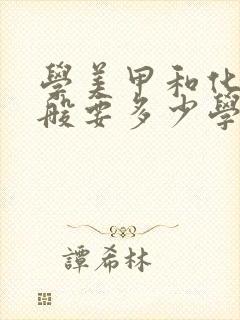 學美甲和化
般要多少學
譚希林